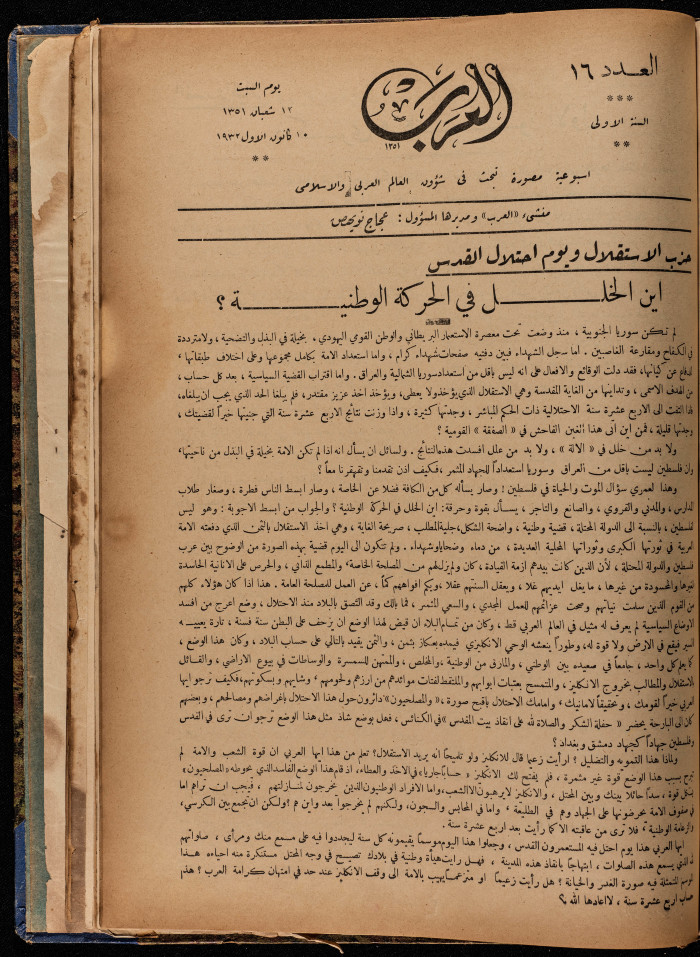 العدد ١٦
***
السنة الاولى
**
العرب
١٣٥١
يوم السبت
١٢ شعبان ١٣٥١
١٠ كانون الاول ١٩٣٢
**
اسبوعية مصورة تبحث فى شؤون العالم العربى والاسلامى
منشىء «العرب» ومديرها المسؤول : عجاج نويهض
حزب الاستقلال ويوم احتلال القدس
اين الخلل في الحركة الوطنية ؟
لم تكن سوريا الجنوبية ، منذ وضعت تحت معصرة الاستعمار البريطاني والوطن القومي اليهودي . بخيلة في البذل والتضحية ، ولا مترددة
في الكفاح ومقارعة الغاصبين . اما سجل الشهداء فبين دفتيه صفحات شهداء كرام ، واما استعداد الامة بكامل مجموعها وعلى اختلاف طبقاتها ،
للدفاع عن كيانها، فقد دلت الوقائع والافعال على انه ليس باقل من استعداد سوريا الشمالية والعراق . واما اقتراب القضية السياسية ، بعد كل حساب ،
من الهدف الاسمى ، وتدانيها من الغاية المقدسة وهي الاستقلال الذي يؤخذ ولا يعطى، ويؤخذ اخذ عزيز مقتدر، فلم يبلغا الحد الذي يجب ان يبلغاه،
فاذا التفت الى الاربع عشرة سنة الاحتلالية ذات الحكم المباشر ، وجدتها كثيرة ، واذا وزنت نتائج الاربع عشرة سنة التي جنيتها خيراً لقضيتك ،
وجدتها قليلة ، فمن اين أتى هذا الغبن الفاحش في « الصفقة » القومية ؟
ولا بد من خلل في « الآلة » ، ولا بد من علل افسدت هذه النتائج . ولسائل ان يسأل انه اذا لم تكن الامة بخيلة في البذل من ناحيتها،
وان فلسطين ليست باقل من العراق وسوريا استعداداً للجهاد المثمر ، فكيف اذن تقدمنا وتقهقرنا معاً ؟
وهذا لعمري سؤال الموت والحياة في فلسطين ! وصار يسأله كل من الكافة فضلا عن الخاصة ، وصار ابسط الناس فطرة ، وصغار طلاب
المدارس ، والمدني والقروي ، والصانع والتاجر ، يسأل بقوة وحرقة: اين الخلل في الحركة الوطنية ؟ والجواب من ابسط الاجوبة : وهو ليس
فلسطين ، بالنسبة الى الدولة المحتلة ، قضية وطنية ، واضحة الشكل، جلية المطلب ، صريحة الغاية ، وهي اخذ الاستقلال بالثمن الذي دفعته الامة
العربية في ثورتها الكبرى وثوراتها المحلية العديدة ، من دماء وضحايا وشهداء . ولم تتكون الى اليوم قضية بهذه الصورة من الوضوح بين عرب
فلسطين والدولة المحتلة ، لأن الذين كانت بيدهم ازمة القيادة ، كان ولم يزل لهم من المصلحة الخاصة، والمطمع الذاتي ، والحرص على الانانية الحاسدة
غيرها والمحسودة من غيرها ، ما يغل ايديهم غلا ، ويعقل السنتهم عقلا ، ويكم افواههم كماً ، عن العمل للمصلحة العامة . هذا اذا كان هؤلاء كلهم
من القوم الذين سلمت نياتهم وصحت عزائمهم للعمل المجدي ، والسعي المثمر ، فما بالك وقد التصق بالبلاد منذ الاحتلال ، وضع اعرج من افسد
الاوضاع السياسية لم يعرف له مثيل في العالم العربي قط ، وكان من تمام البلاء ان قيض لهذا الوضع ان يزحف على البطن سنة فسنة ، تارة يعييه
السير فيقع في الارض ولا قوة له، وطوراً ينعشه الوحي الانكليزي فيمده بعكاز بثمن ، والثمن يقيد بالتالي على حساب البلاد ، وكان هذا الوضع ،
كما يعلم كل واحد ، جامعاً في صعيده بين الوطني ، والمارق من الوطنية ، والمخلص ، والممتهن للسمسرة والوساطات في بيوع الاراضي ، والقائل
بالاستقلال والمطالب بخروج الانكليز ، والمتمسح بعتبات ابوابهم والملتقط لفتات موائدهم من ارزهم ولحومهم ، وشايهم وبسكوتهم ، فكيف ترجو ايها
العربي خيراً لقومك ، وتحقيقاً لامانيك ، وامامك الاحتلال باقبح صورة ، و«المصلحيون» دائرون حول هذا الاحتلال باغراضهم ومصالحهم ، وبعضهم
كان الى البارحة يحضر « حفلة الشكر والصلاة لله على انقاذ بيت المقدس » في الكنائس ، فعل بوضع شاذ مثل هذا الوضع ترجو ان ترى في القدس
وفلسطين جهاداً كجهاد دمشق وبغداد ؟
ولماذا هذا التمويه والتضليل ؟ أرأيت زعيما قال للانكليز ولو تلميحاً انه يريد الاستقلال؟ تعلم من هذا ايها العربي ان قوة الشعب والامة لم
تربح بسبب هذا الوضع قوة غير مثمرة ، فلم يفتح لك الانكليز «حساباً جارياً» في الاخذ والعطاء، اذ قام هذا الوضع الفاسد الذي يحوطه «المصلحيون»
بكل قوة ، سداً حائلا بينك وبين المحتل ، والانكليز لا يرهبون الا الشعب، واما الافراد الوطنيون الذين يخرجون لمنازلتهم ، فيجب ان تراهم اما
في صفوف الامة يحرضونها على الجهاد وهم في الطليعة ، واما في المحابس والسجون، ولكنهم لم يخرجوا بعد واين هم ؟ ولكن ان تجمع بين الكرسي،
والزعامة الوطنية ، فلا ترى من عاقبته الا كما رأيت بعد اربع عشرة سنة .
ايها العربي هذا يوم احتل فيه المستعمرون القدس ، وجعلوا هذا اليوم موسماً يقيمونه كل سنة ليجددوا فيه على مسمع منك ومرأى ، صلواتهم
لله الذي يسمع هذه الصلوات ، ابتهاجاً بانقاذ هذه المدينة ، فهل رايت هيأة وطنية في بلادك تصيح في وجه المحتل مستنكرة منه احياءه هذا
الموسم المتمثلة فيه صورة الغدر والخيانة ؟ هل رأيت زعيماً او متزعماً يهيب بالامة الى وقف الانكليز عند حد في امتهان كرامة العرب ؟ هذم
مصاب اربع عشرة سنة ، لا اعادها الله ؟